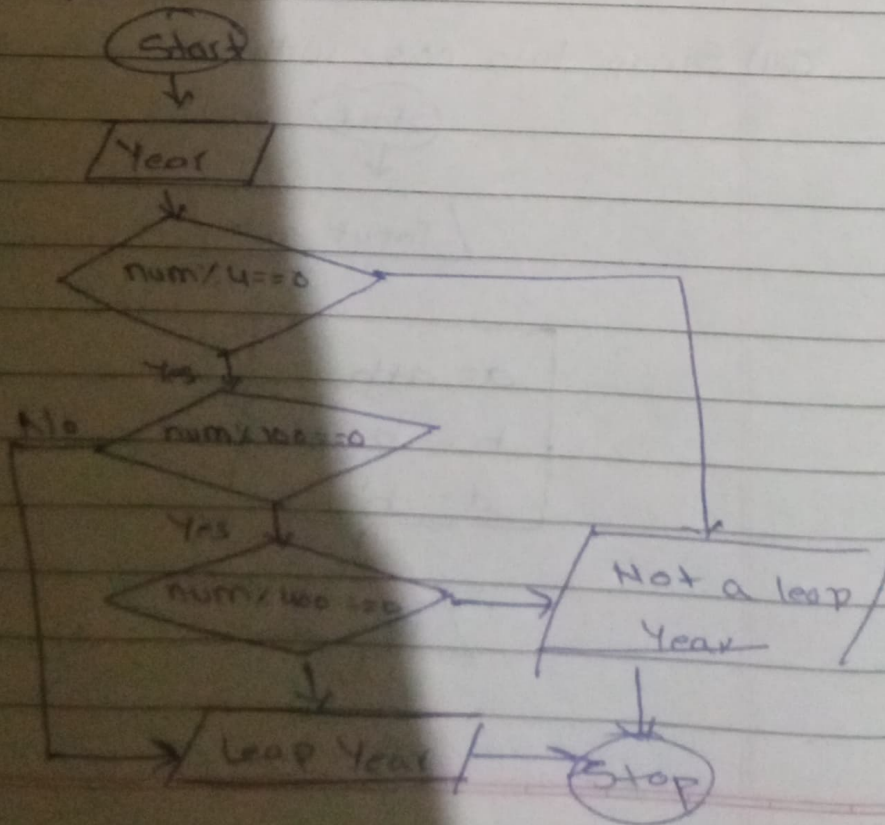 Start
Year
num%4==0
Yes
No
num%100==0
Yes
num%400==0
Not a leap
Year
Leap Year
Stop